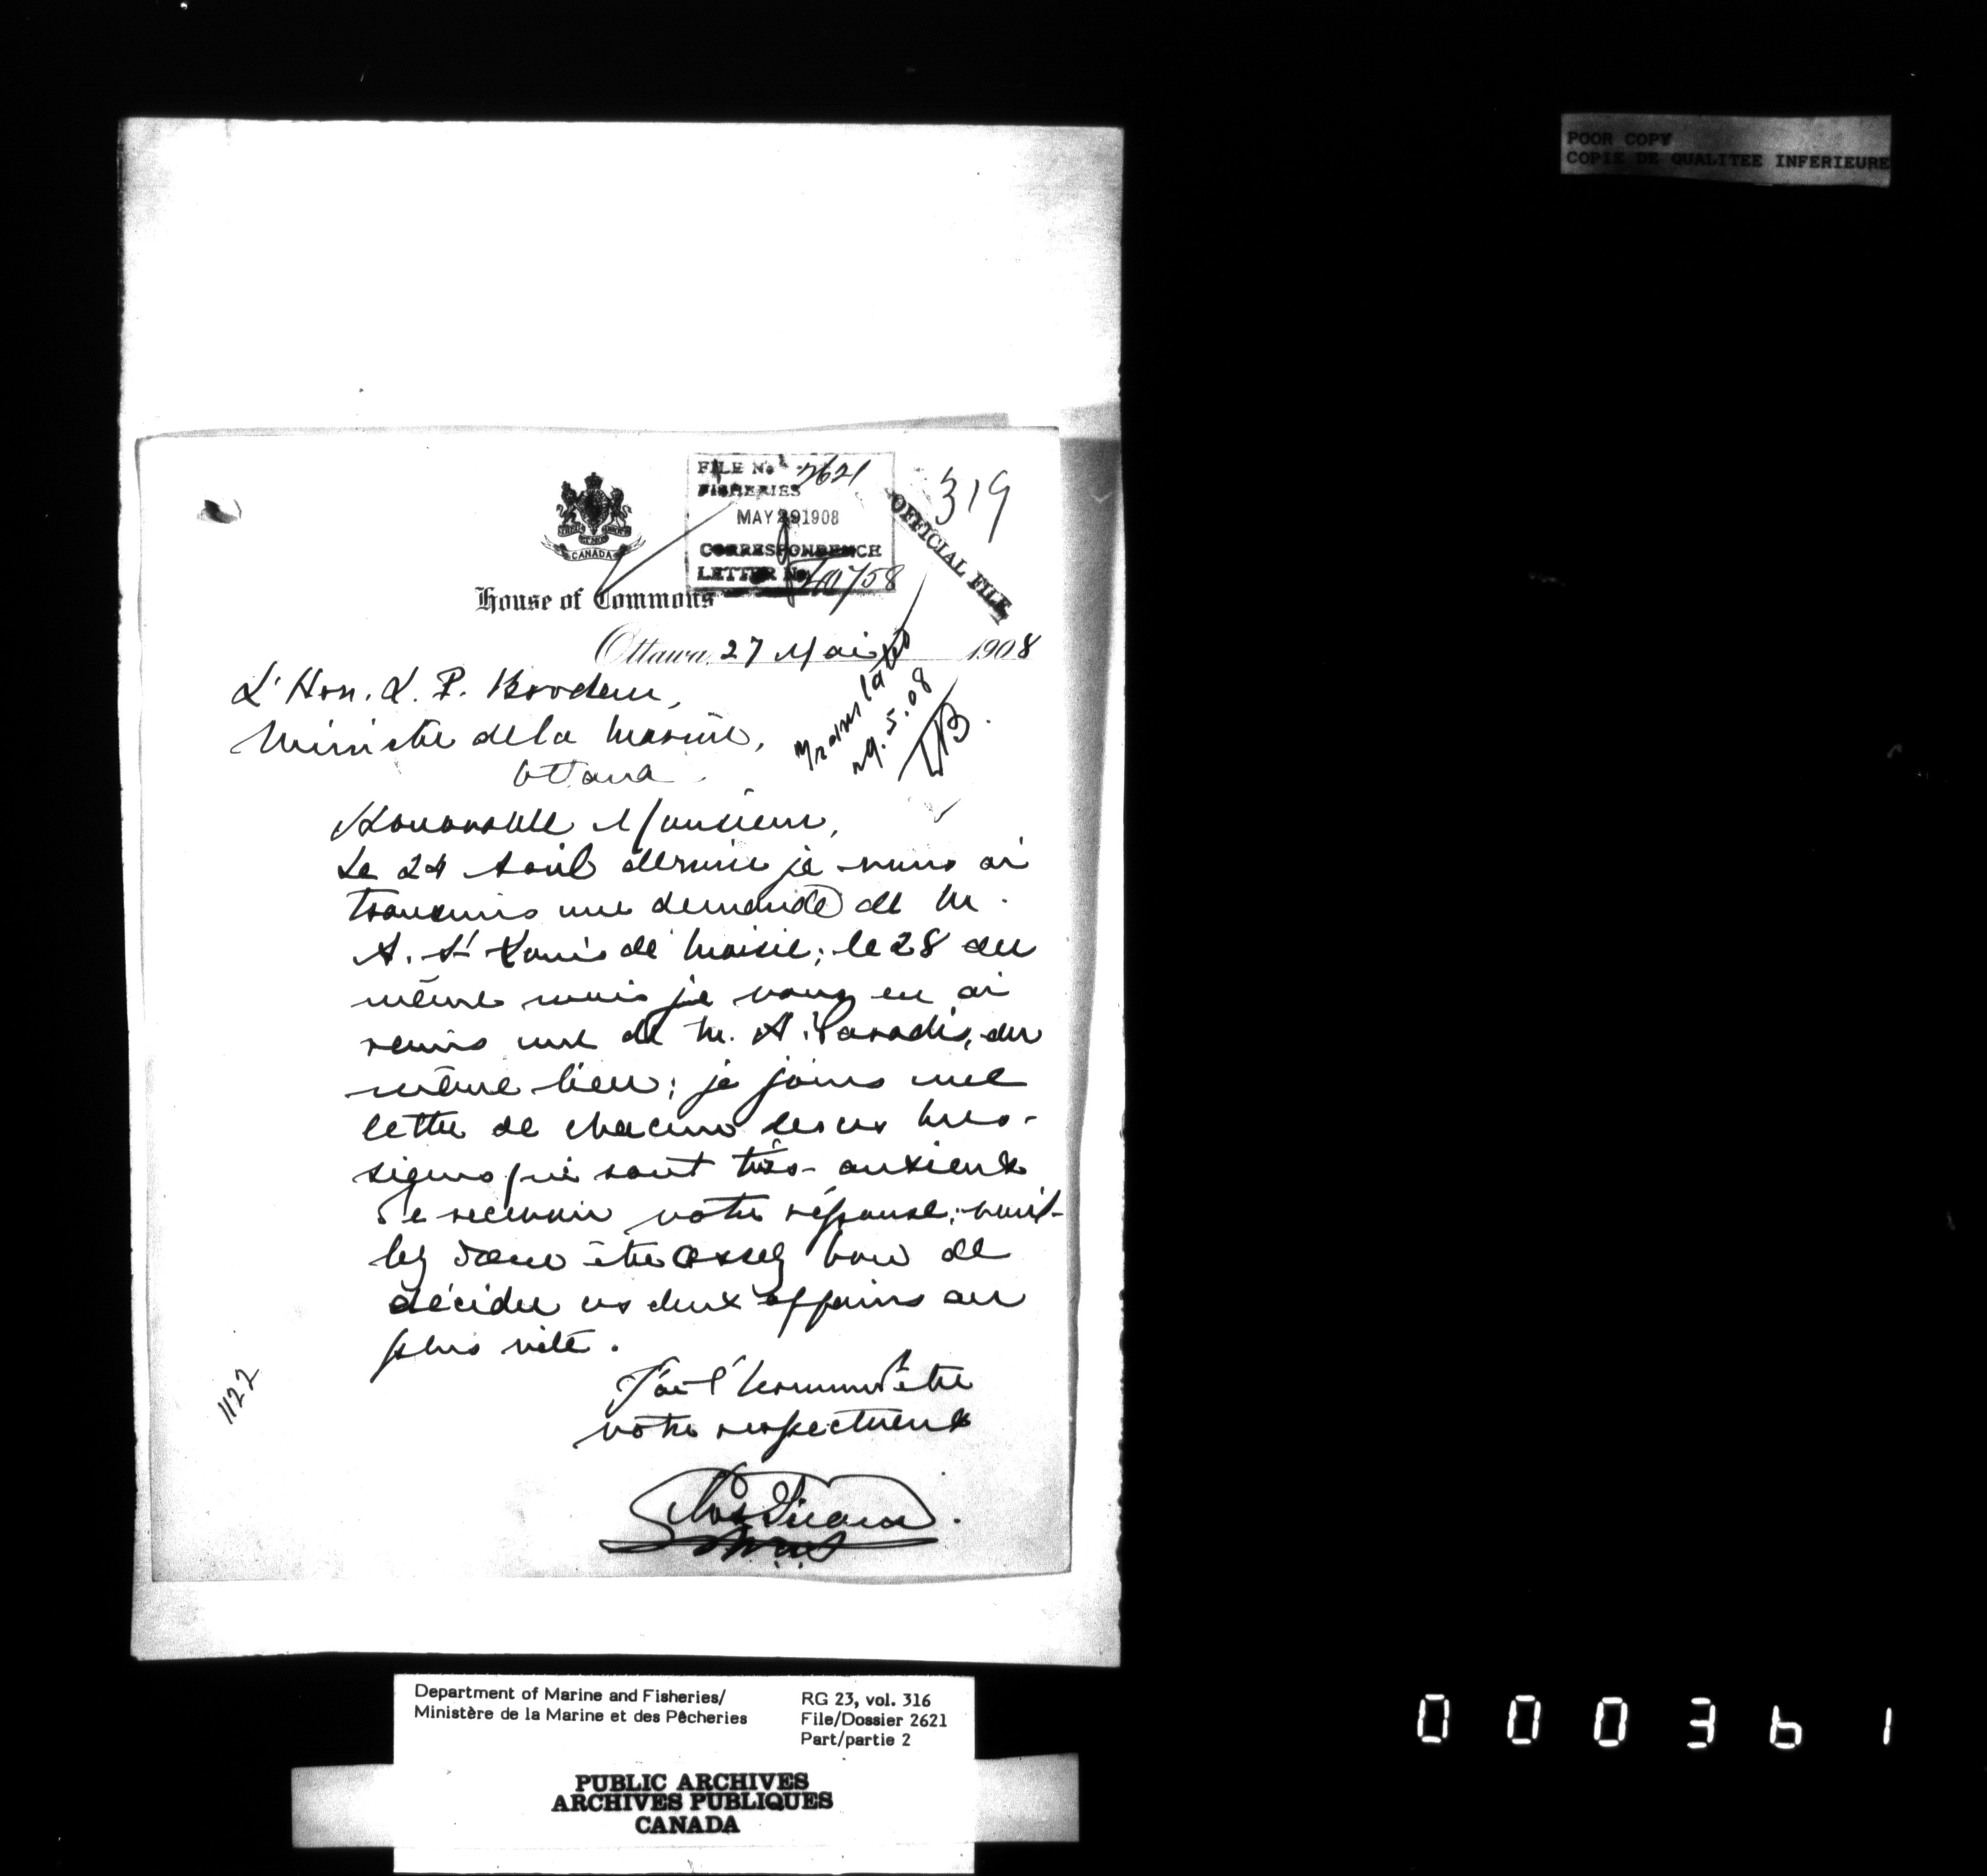 POOR COPY
COPIE DE QUALITEE INFERIEURE
FILE No 2621
FISHERIES
MAY 29 1908
CORRESPONDENCE
LETTER No
319
OFFICIAL FILE
CANADA
House of Commons
Ottawa, 27 Mai 1908
L'Hon. L. P. Brodeur,
Ministre de la Marine,
Ottawa
29.5.08
Honorable Monsieur,
Le 24 Avril dernier je vous ai
transmis une demande de M.
A. St Louis de Moisie; le 28 du
même mois je vous en ai
remis une de M. A. Paradis, du
même lieu; je joins une
lettre de chacun de ces Mes-
sieurs qui sont très-anxieux
de recevoir votre réponse; veuil-
lez donc être assez bon de
décider ces deux affaires au
plus vite.
J'ai l'honneur d'être
votre respectueux
1122
Department of Marine and Fisheries/
Ministère de la Marine et des Pêcheries
RG 23, vol. 316
File/Dossier 2621
Part/partie 2
PUBLIC ARCHIVES
ARCHIVES PUBLIQUES
CANADA
000361